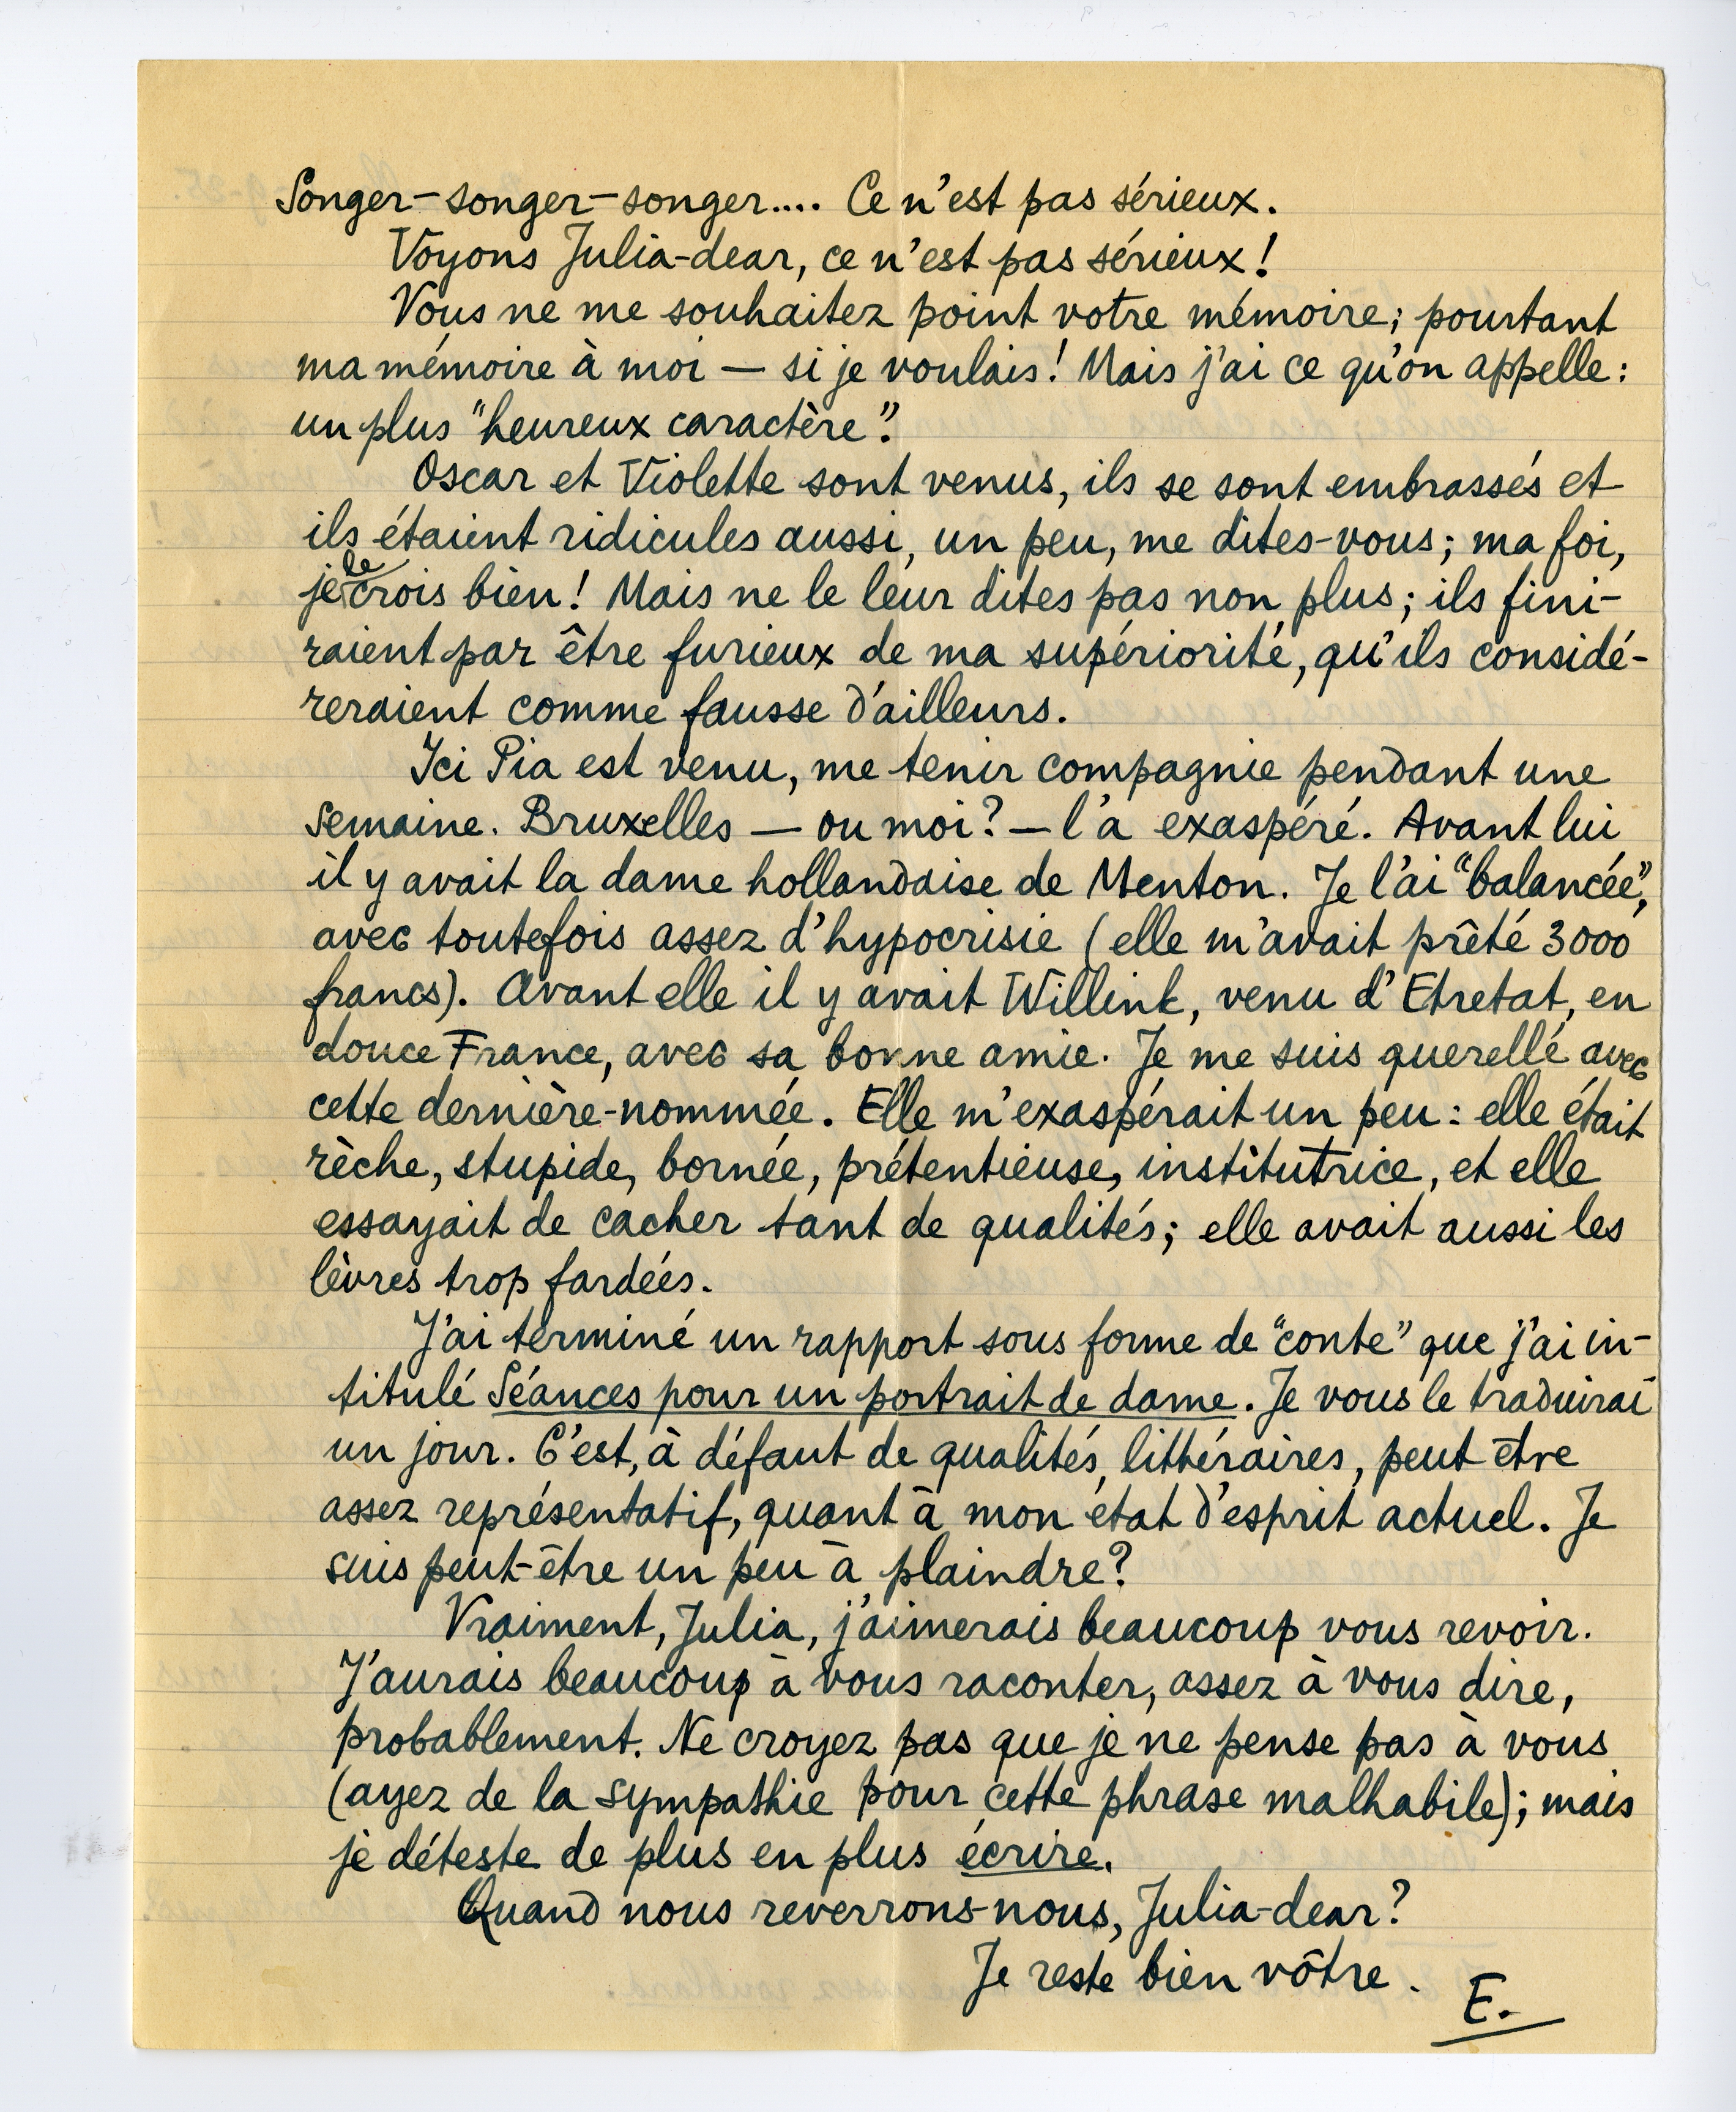 Songer-songer-songer.... Ce n'est pas sérieux.
Voyons Julia-dear, ce n'est pas sérieux!
Vous ne me souhaitez point votre mémoire; pourtant
ma mémoire à moi — si je voulais! Mais j'ai ce qu'on appelle:
un plus "heureux caractère".
Oscar et Violette sont venus, ils se sont embrassés et
ils étaient ridicules aussi, un peu, me dites-vous; ma foi,
je le crois bien! Mais ne le leur dites pas non plus; ils fini-
raient par être furieux de ma supériorité, qu'ils considé-
reraient comme fausse d'ailleurs.
Ici Pia est venu, me tenir compagnie pendant une
semaine. Bruxelles — ou moi? — l'a exaspéré. Avant lui
il y avait la dame hollandaise de Menton. Je l'ai "balancée",
avec toutefois assez d'hypocrisie (elle m'avait prêté 3000
francs). Avant elle il y avait Willink, venu d'Etretat, en
douce France, avec sa bonne amie. Je me suis querellé avec
cette dernière-nommée. Elle m'exaspérait un peu: elle était
rèche, stupide, bornée, prétentieuse, institutrice, et elle
essayait de cacher tant de qualités; elle avait aussi les
lèvres trop fardées.
J'ai terminé un rapport sous forme de "conte" que j'ai in-
titulé Séances pour un portrait de dame. Je vous le traduirai
un jour. C'est, à défaut de qualités littéraires, peut être
assez représentatif, quant à mon état d'esprit actuel. Je
suis peut-être un peu à plaindre?
Vraiment, Julia, j'aimerais beaucoup vous revoir.
J'aurais beaucoup à vous raconter, assez à vous dire,
probablement. Ne croyez pas que je ne pense pas à vous
(ayez de la sympathie pour cette phrase malhabile); mais
je déteste de plus en plus écrire.
Quand nous reverrons-nous, Julia-dear?
Je reste bien vôtre.
E.